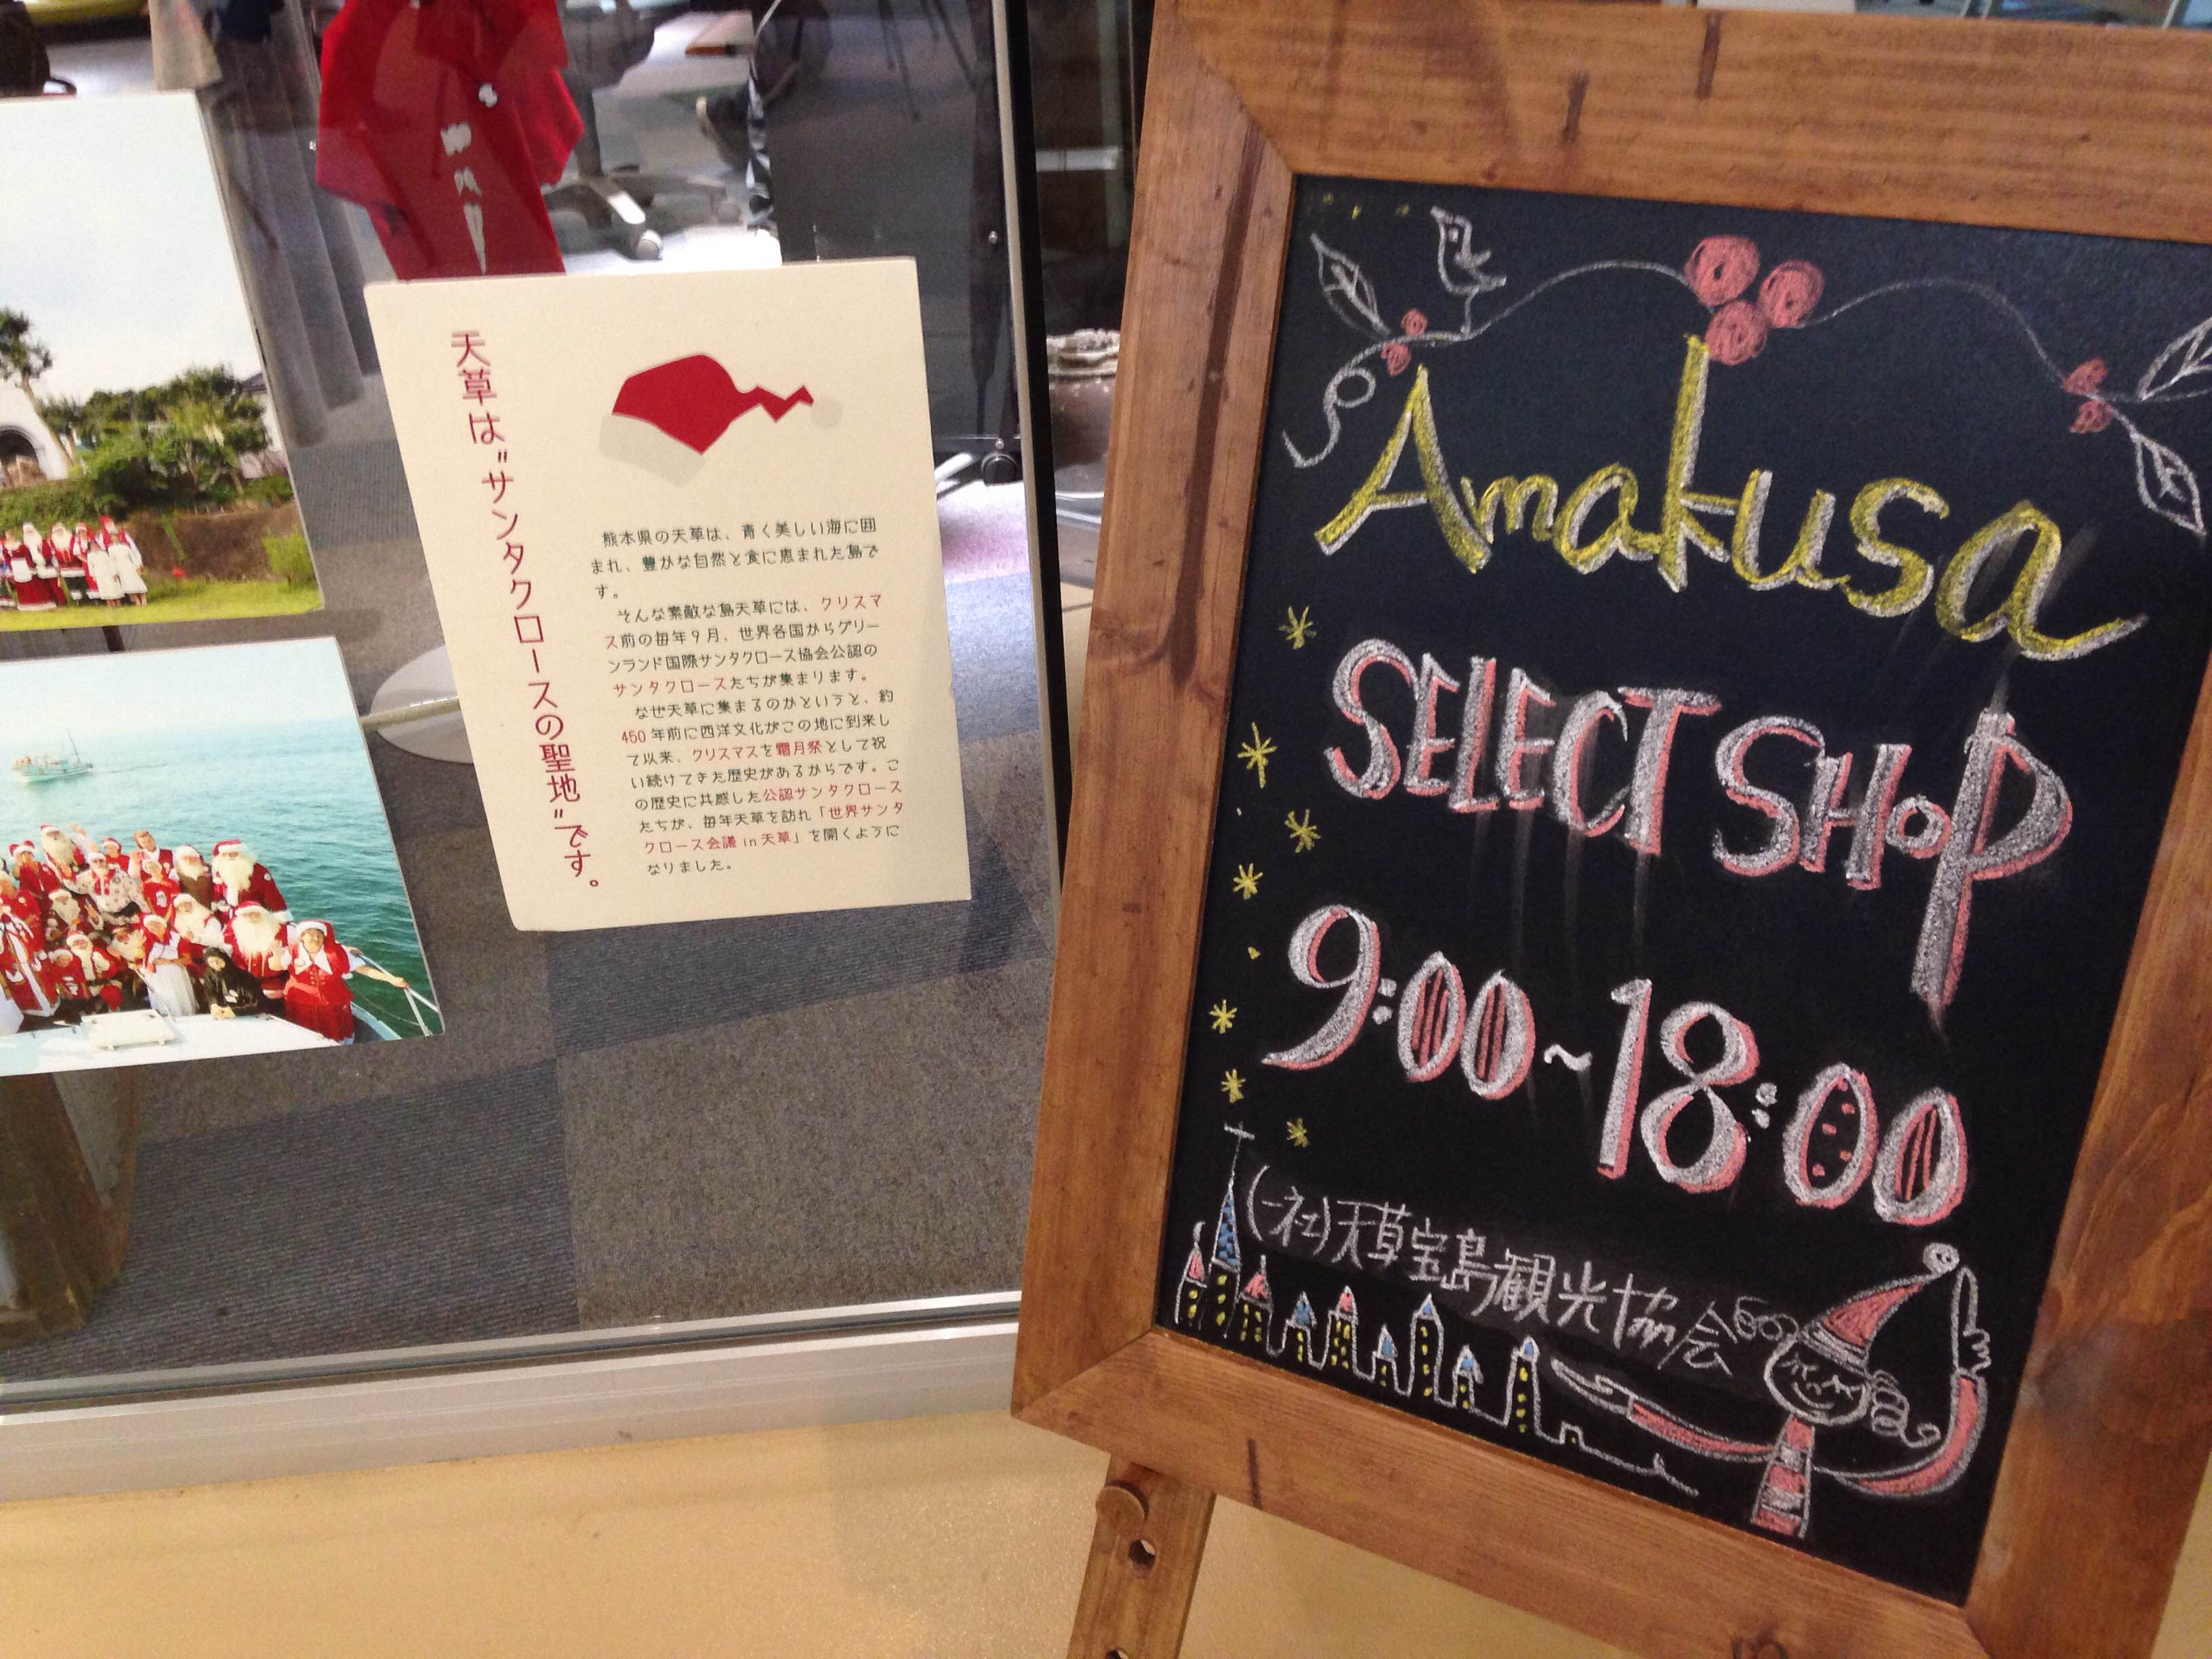 天草は"サンタクロースの聖地"です。
熊本県の天草は、青く美しい海に囲
まれ、豊かな自然と食に恵まれた島で
す。
そんな素敵な島天草には、クリスマ
ス前の毎年9月、世界各国からグリー
ンランド国際サンタクロース協会公認の
サンタクロースたちが集まります。
なぜ天草に集まるのかというと、約
450年前に西洋文化がこの地に到来し
て以来、クリスマスを霜月祭として祝
い続けてきた歴史があるからです。こ
の歴史に共感した公認サンタクロース
たちが、毎年天草を訪れ「世界サンタ
クロース会議 in 天草」を開くように
なりました。
Amakusa
SELECT SHOP
9:00~18:00
(一社)天草宝島観光協会